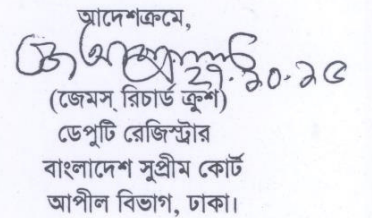 আদেশক্রমে,
২৭.১০.২৫
(জেমস্ রিচার্ড ক্রুশ)
ডেপুটি রেজিস্ট্রার
বাংলাদেশ সুপ্রীম কোর্ট
আপীল বিভাগ, ঢাকা।